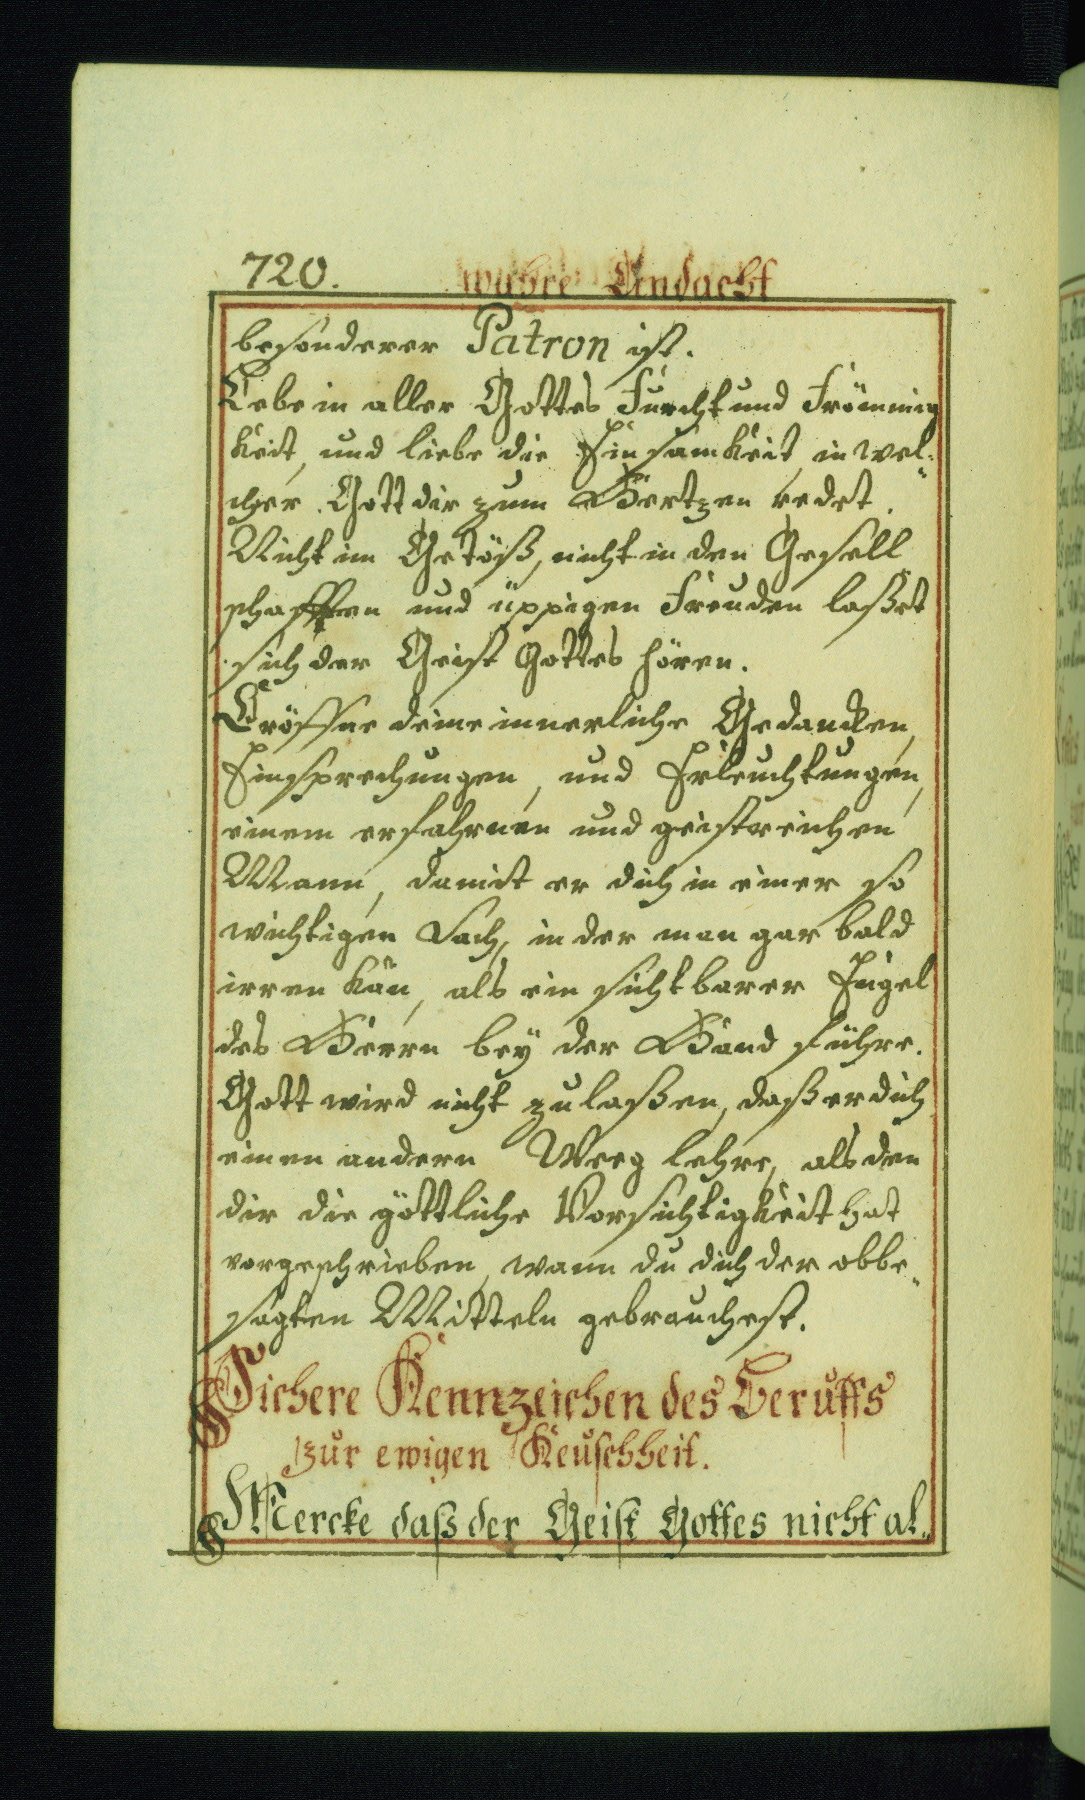 720. wahre Andacht
besonderer Patron ist.
Lebe in aller Gottes Furcht und Frömmig
keit, und liebe die Einsamkeit, in wel„
cher Gott dir zum Hertzen redet.
Nicht im Getöß, nicht in den Gesell
schafften und üppigen Freuden laßet
sich der Geist Gottes hören.
Eröffne deine innerliche Gedancken,
Einsprechungen, und Erleuchtungen,
einem erfahrnen und geistreichen
Mann, damit er dich in einer so
wichtigen Sach, in der man gar bald
irren kan, als ein sichtbarer Engel
des Herrn bey der Hand führe.
Gott wird nicht zulaßen, daß er dich
einen andern Weeg lehre, als den
dir die göttliche Vorsichtigkeit hat
vorgeschrieben, wann du dich der obbe„
sagten Mitteln gebrauchest.
Sichere Kennzeichen des Beruffs
zur ewigen Keuschheit.
Mercke daß der Geist Gottes nicht al„